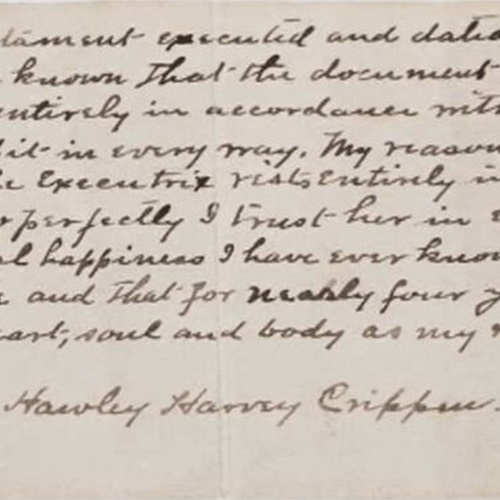 tament executed and dated
known that the document
entirely in accordance with
it in every way. My reason
Executrix rests entirely in
perfectly I trust her in
al happiness I have ever know
and that for nearly four y
eart, soul and body as my
Hawley Harvey Crippen.